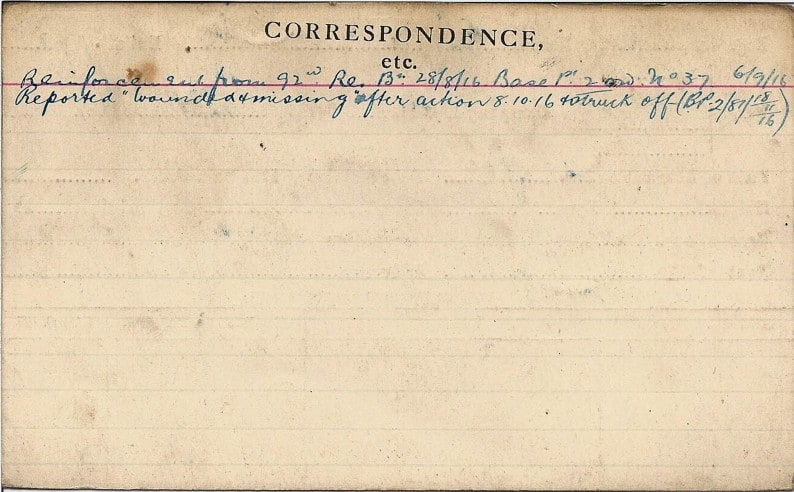 CORRESPONDENCE,
etc.
Reinforcement from 92nd Re. Bn. 28/8/16 Base Pt. 2 ord. No 37 6/9/16
Reported "wounded & missing" after action 8.10.16 & struck off (BP 2/81/18/11/16)